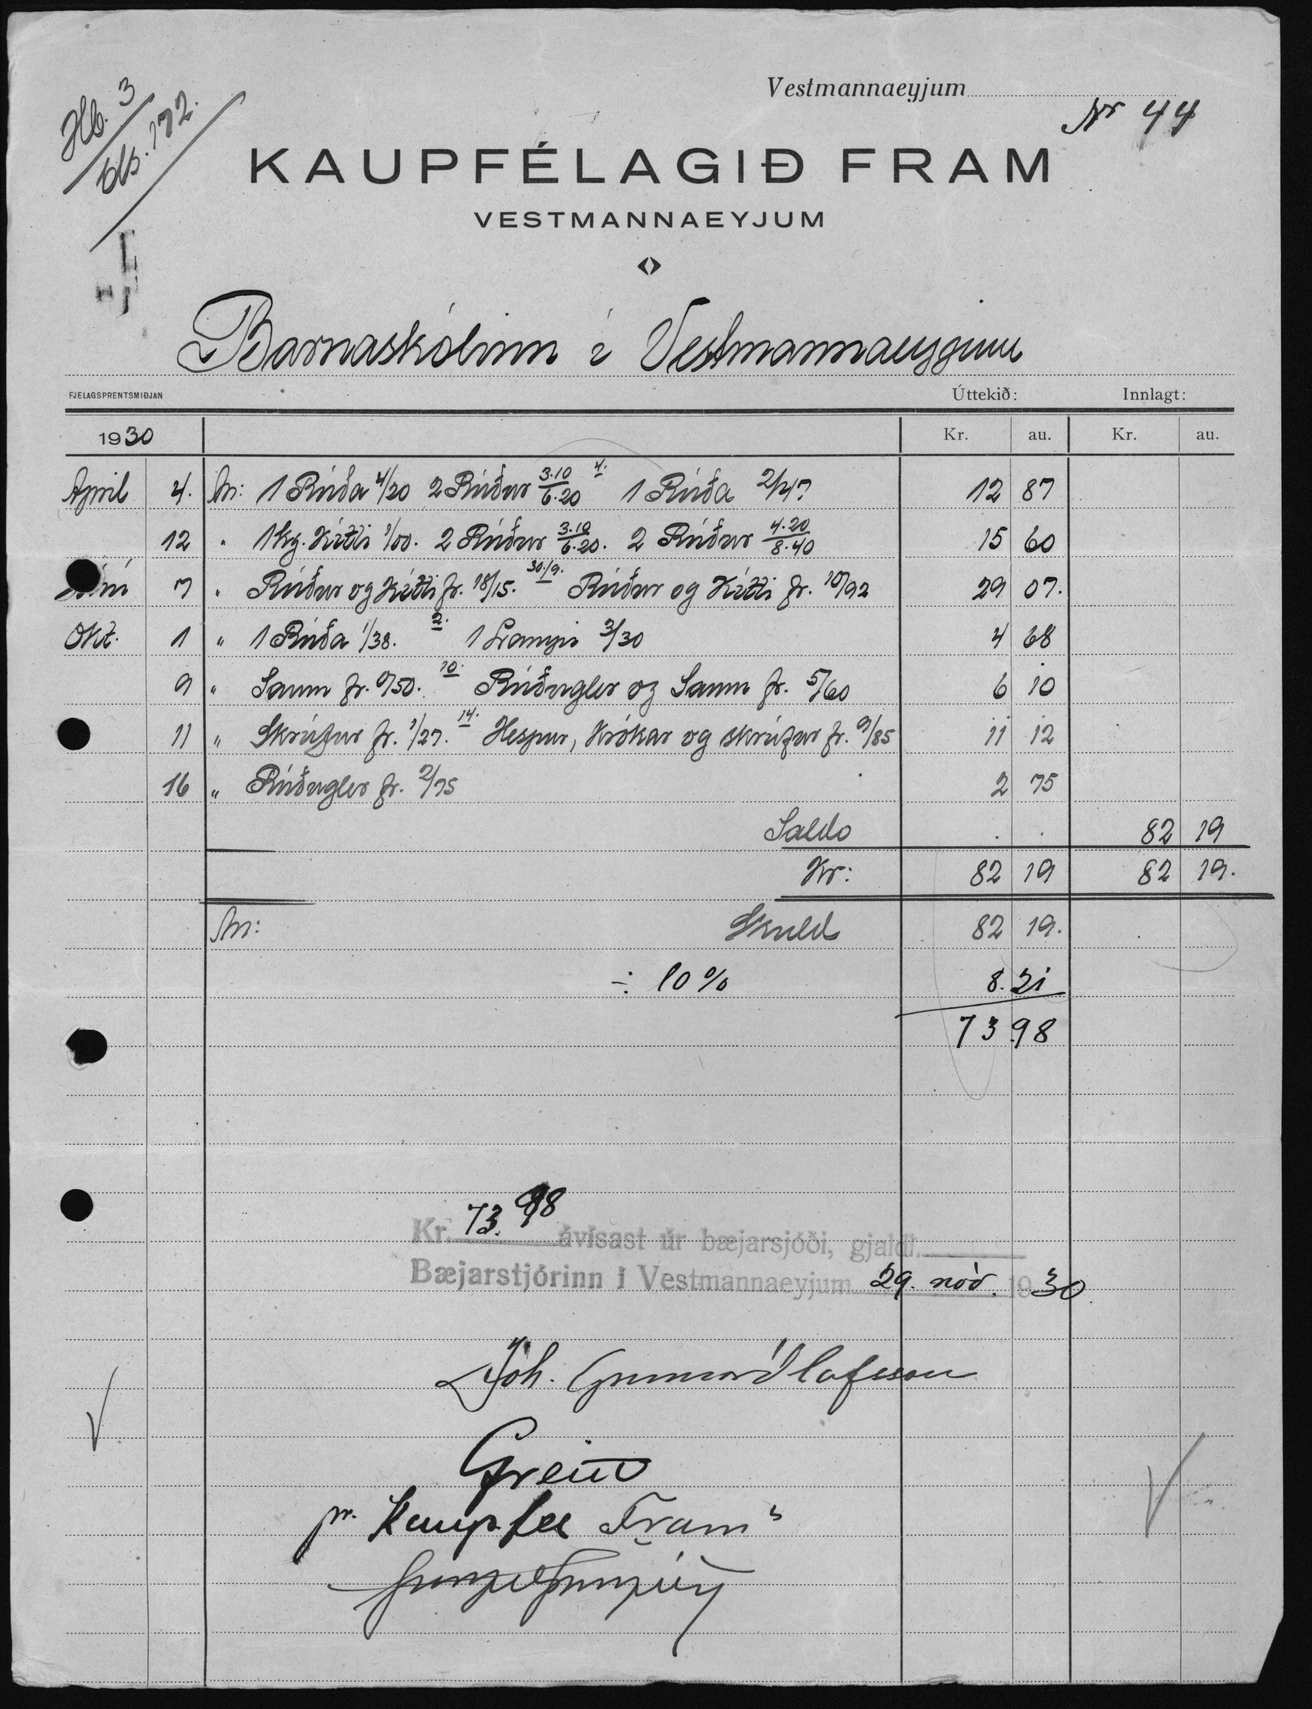 Hb. 3
bls. 172.
Vestmannaeyjum
Nr 44
KAUPFÉLAGIÐ FRAM
VESTMANNAEYJUM
Barnaskólinn í Vestmannaeyjum
FJELAGSPRENTSMIÐJAN Úttekið: Innlagt:
1930 Kr. au. Kr. au.
Apríl 4. An: 1 Rúða 4/20 2 Rúður 3.10/6.20 4. 1 Rúða 2/47 12 87
12 " 1 kg. Kítti 1/00. 2 Rúður 3.10/6.20. 2 Rúður 4.20/8.40 15 60
7 " Rúður og Kítti fr. 18/15. 30/9. Rúður og Kítti fr. 10/92 29 07.
Okt. 1 " 1 Rúða 1/38. 2. 1 Lampi 3/30 4 68
9 " Saum fr. 0/50. 10. Rúðugler og Saum fr. 5/60 6 10
11 " Skrúfur fr. 1/27. 14. Hespur, Krókar og skrúfur fr. 9/85 11 12
16 " Rúðugler fr. 2/75 2 75
Saldo 82 19
Kr: 82 19 82 19.
An: Skuld 82 19.
÷ 10% 8.21
73 98
Kr. 73.98 ávísast úr bæjarsjóði, gjaldl.
Bæjarstjórinn í Vestmannaeyjum 29. nóv. 1930
Jóh. Gunnar Ólafsson
Greitt
pr. Kaupfél Fram"